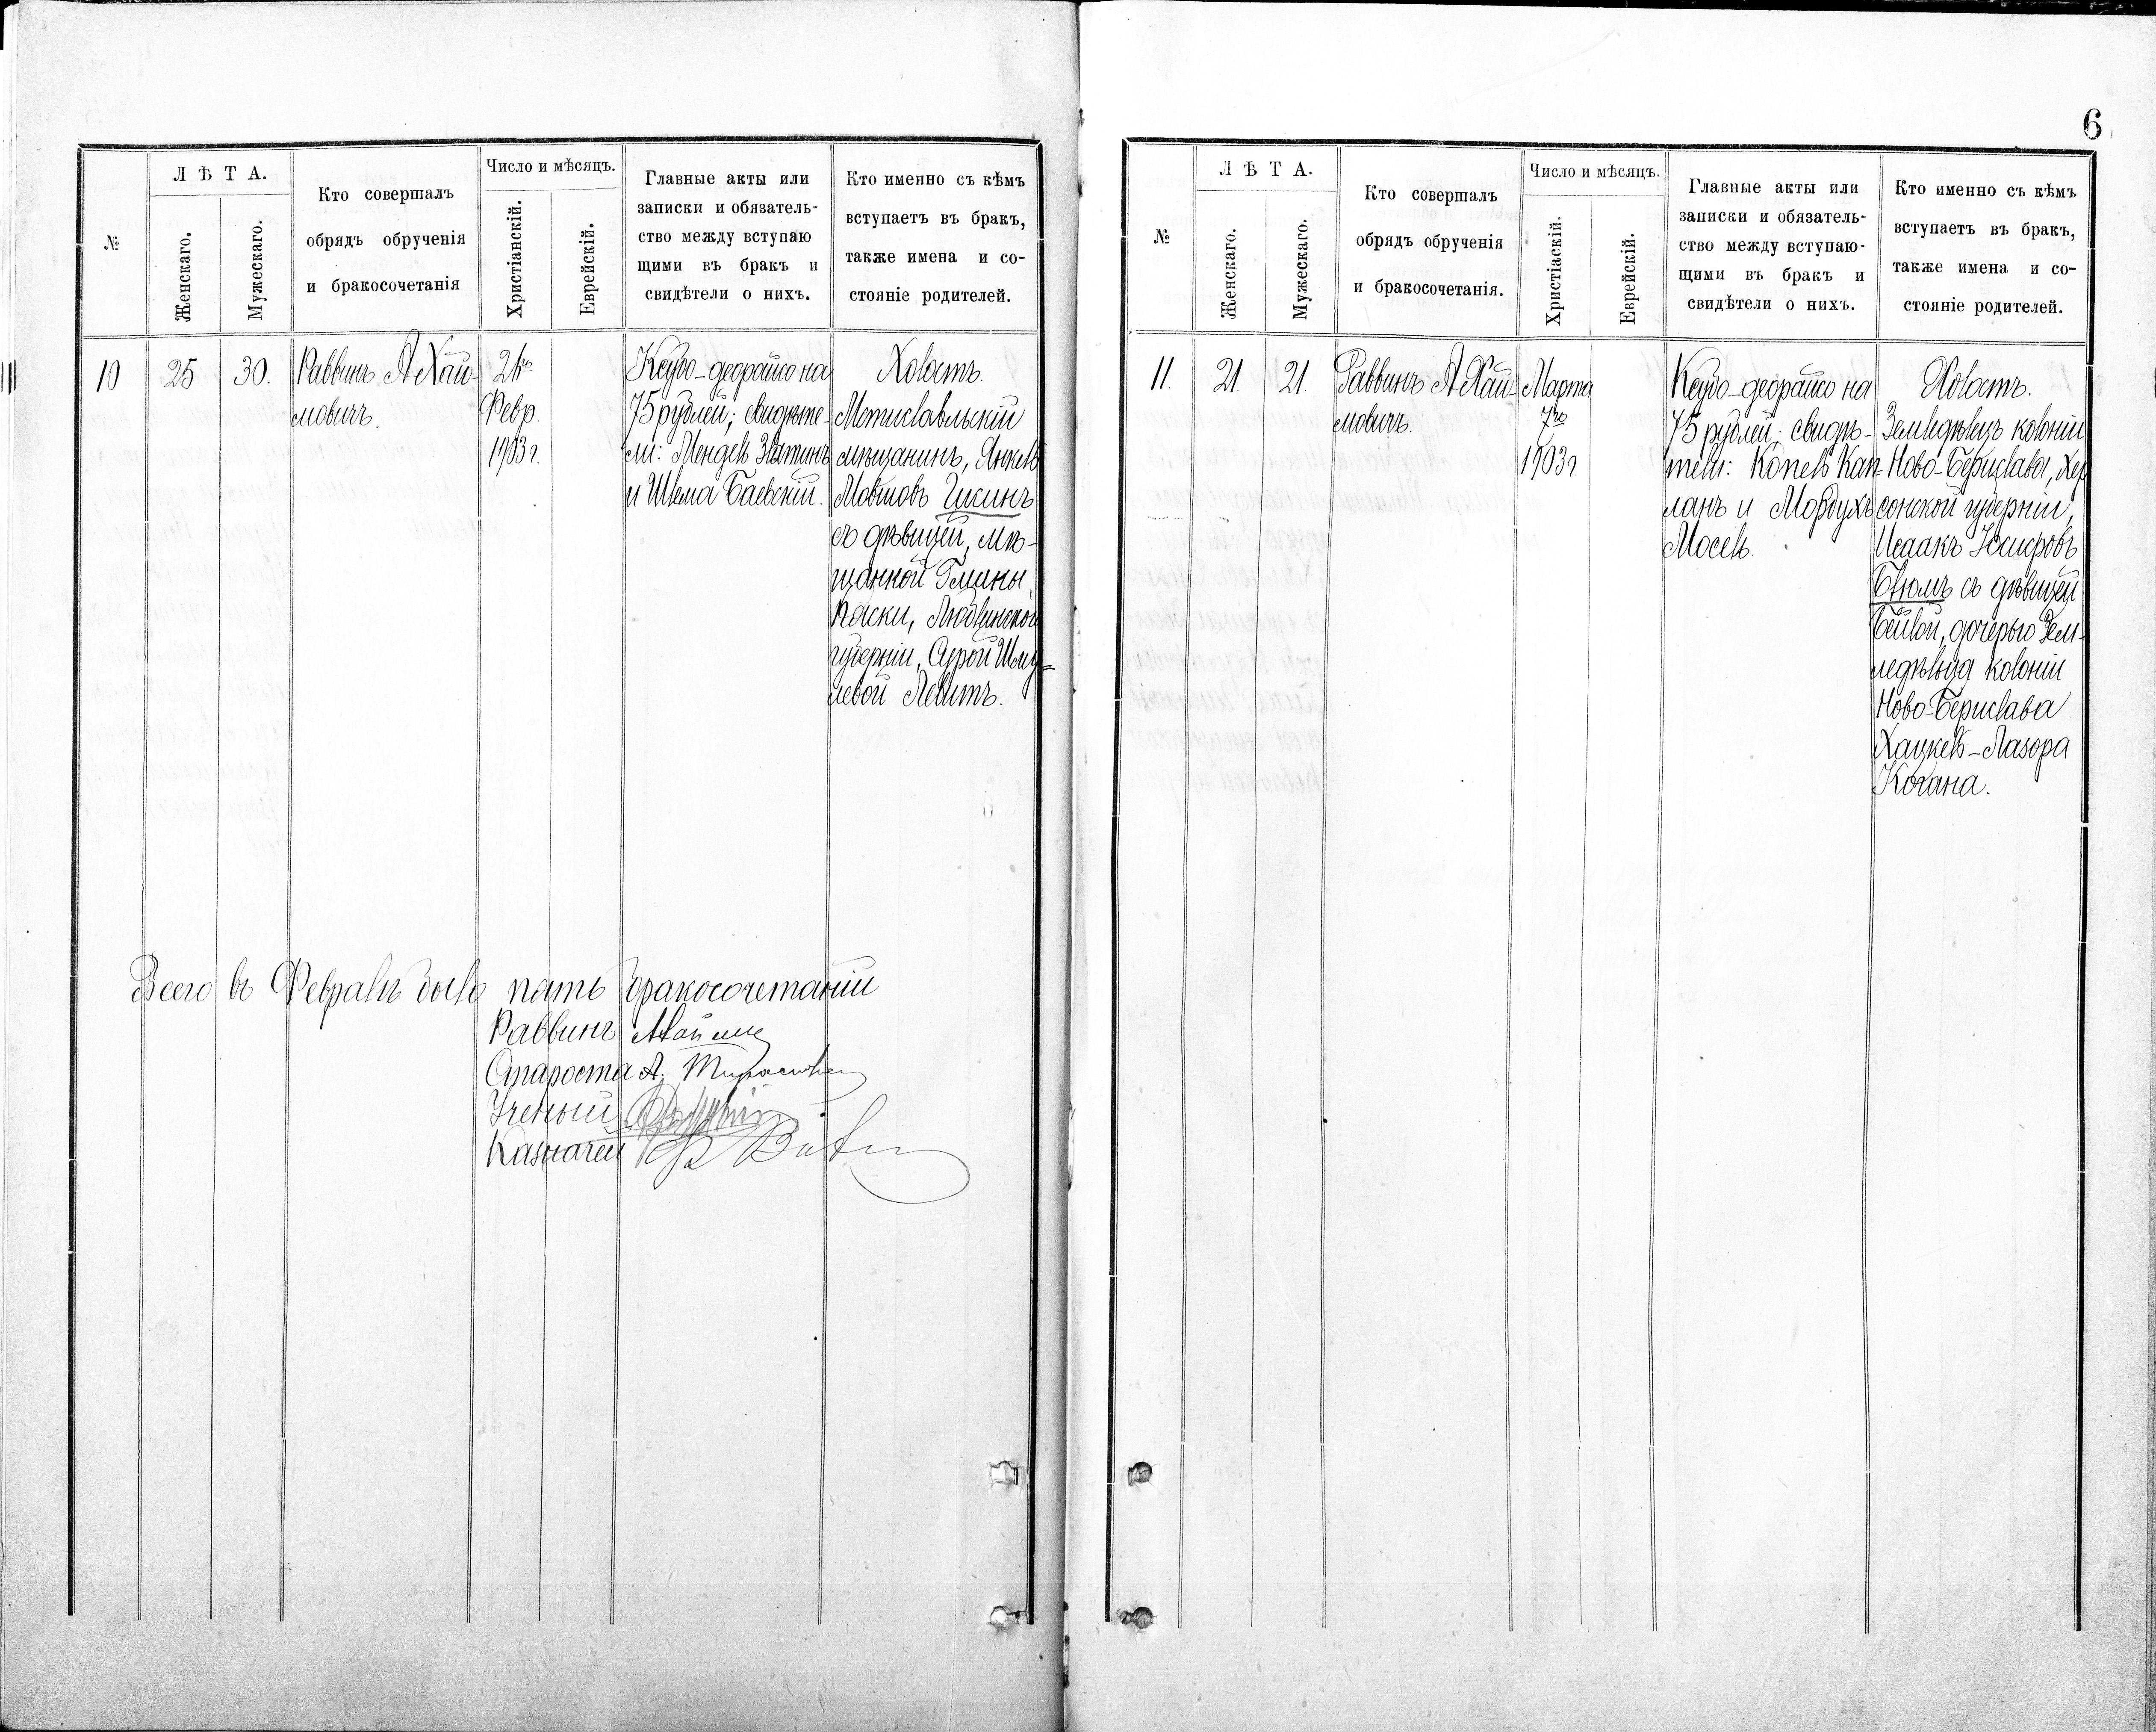 №
Л Ѣ Т А.
Женскаго.
Мужескаго.
Кто совершалъ
обрядъ обрученія
и бракосочетанія
Число и мѣсяцъ.
Христіанскій.
Еврейскій.
Главные акты или
записки и обязатель-
ство между вступаю
щими въ бракъ и
свидѣтели о нихъ.
Кто именно съ кѣмъ
вступаетъ въ бракъ,
также имена и со-
стояніе родителей.
10
25
30.
Раввинъ А Хай-
мовичъ.
21го
Февр.
1903 г.
Ксубо-деорайто на
75 рублей; свидѣте-
ли: Мендель Златинъ
и Шлема Баевскій.
Холостъ.
Мстиславльскій
мѣщанинъ, Янкель
Мовшовъ Цкинъ
съ дѣвицей, мѣ-
щанкой Гмины
Пяски, Люблинской
губерніи, Сурой Шму-
левой Левитъ.
Всего въ Февралѣ было пять бракосочетаній
Раввинъ
Староста А.
Ученый
Казначей
6
№
Л Ѣ Т А.
Женскаго.
Мужескаго.
Кто совершалъ
обрядъ обрученія
и бракосочетанія.
Число и мѣсяцъ.
Христіаскій.
Еврейскій.
Главные акты или
записки и обязатель-
ство между вступаю-
щими въ бракъ и
свидѣтели о нихъ.
Кто именно съ кѣмъ
вступаетъ въ бракъ,
также имена и со-
стояніе родителей.
11.
21.
21.
Раввинъ А Хай-
мовичъ.
Марта
7го
1903 г.
Ксубо-деорайто на
75 рублей; свидѣ-
тели: Копель Кап-
ланъ и Мордухъ
Мосель.
Холостъ.
Земледѣлецъ колоніи
Ново-Берислава, Хер
сонской губерніи,
Исаакъ Юсифовъ
Блюмъ съ дѣвицей
Бейлой, дочерью Зем-
ледѣльца колоніи
Ново-Берислава
Хацкель-Лазора
Когана.